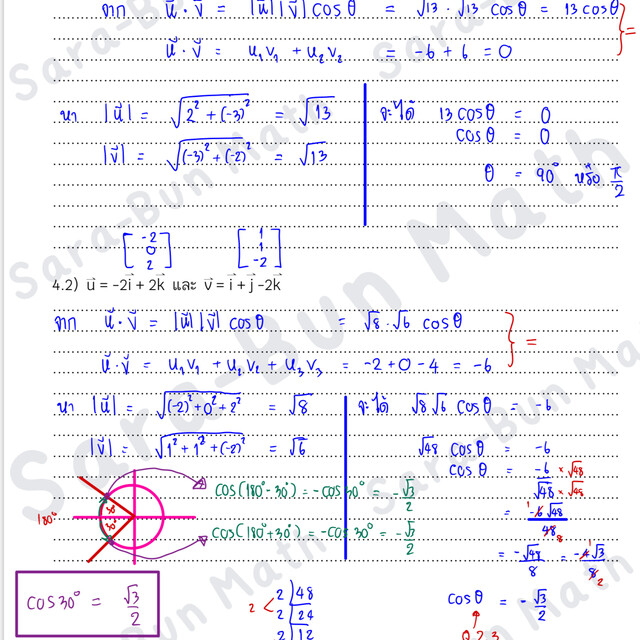 จาก u⃗ · v⃗ = |u⃗||v⃗|cosθ = √13 · √13 cosθ = 13 cosθ } =
u⃗ · v⃗ = u₁v₁ + u₂v₂ = -6 + 6 = 0
หา |u⃗| = √(2² + (-3)²) = √13
|v⃗| = √((-3)² + (-2)²) = √13
จะได้ 13 cosθ = 0
cosθ = 0
θ = 90° หรือ π/2
[-2 0 2] [1 1 -2]
4.2) u⃗ = -2i⃗ + 2k⃗ และ v⃗ = i⃗ + j⃗ -2k⃗
จาก u⃗ · v⃗ = |u⃗||v⃗| cosθ = √8 · √6 cosθ } =
u⃗ · v⃗ = u₁v₁ + u₂v₂ + u₃v₃ = -2 + 0 - 4 = -6
หา |u⃗| = √((-2)² + 0² + 2²) = √8
|v⃗| = √(1² + 1² + (-2)²) = √6
จะได้ √8 √6 cosθ = -6
√48 cosθ = -6
cosθ = -6/√48 × √48/√48
= -6√48/48
= -√48/8 = -4√3/8
cosθ = -√3/2
cos(180° - 30°) = -cos 30° = -√3/2
180°
cos(180° + 30°) = -cos 30° = -√3/2
cos 30° = √3/2
2 < 2 ) 48
2 ) 24
2 ) 12
Sara-Bun Math
Sara-Bun Math
Sara-Bun Math